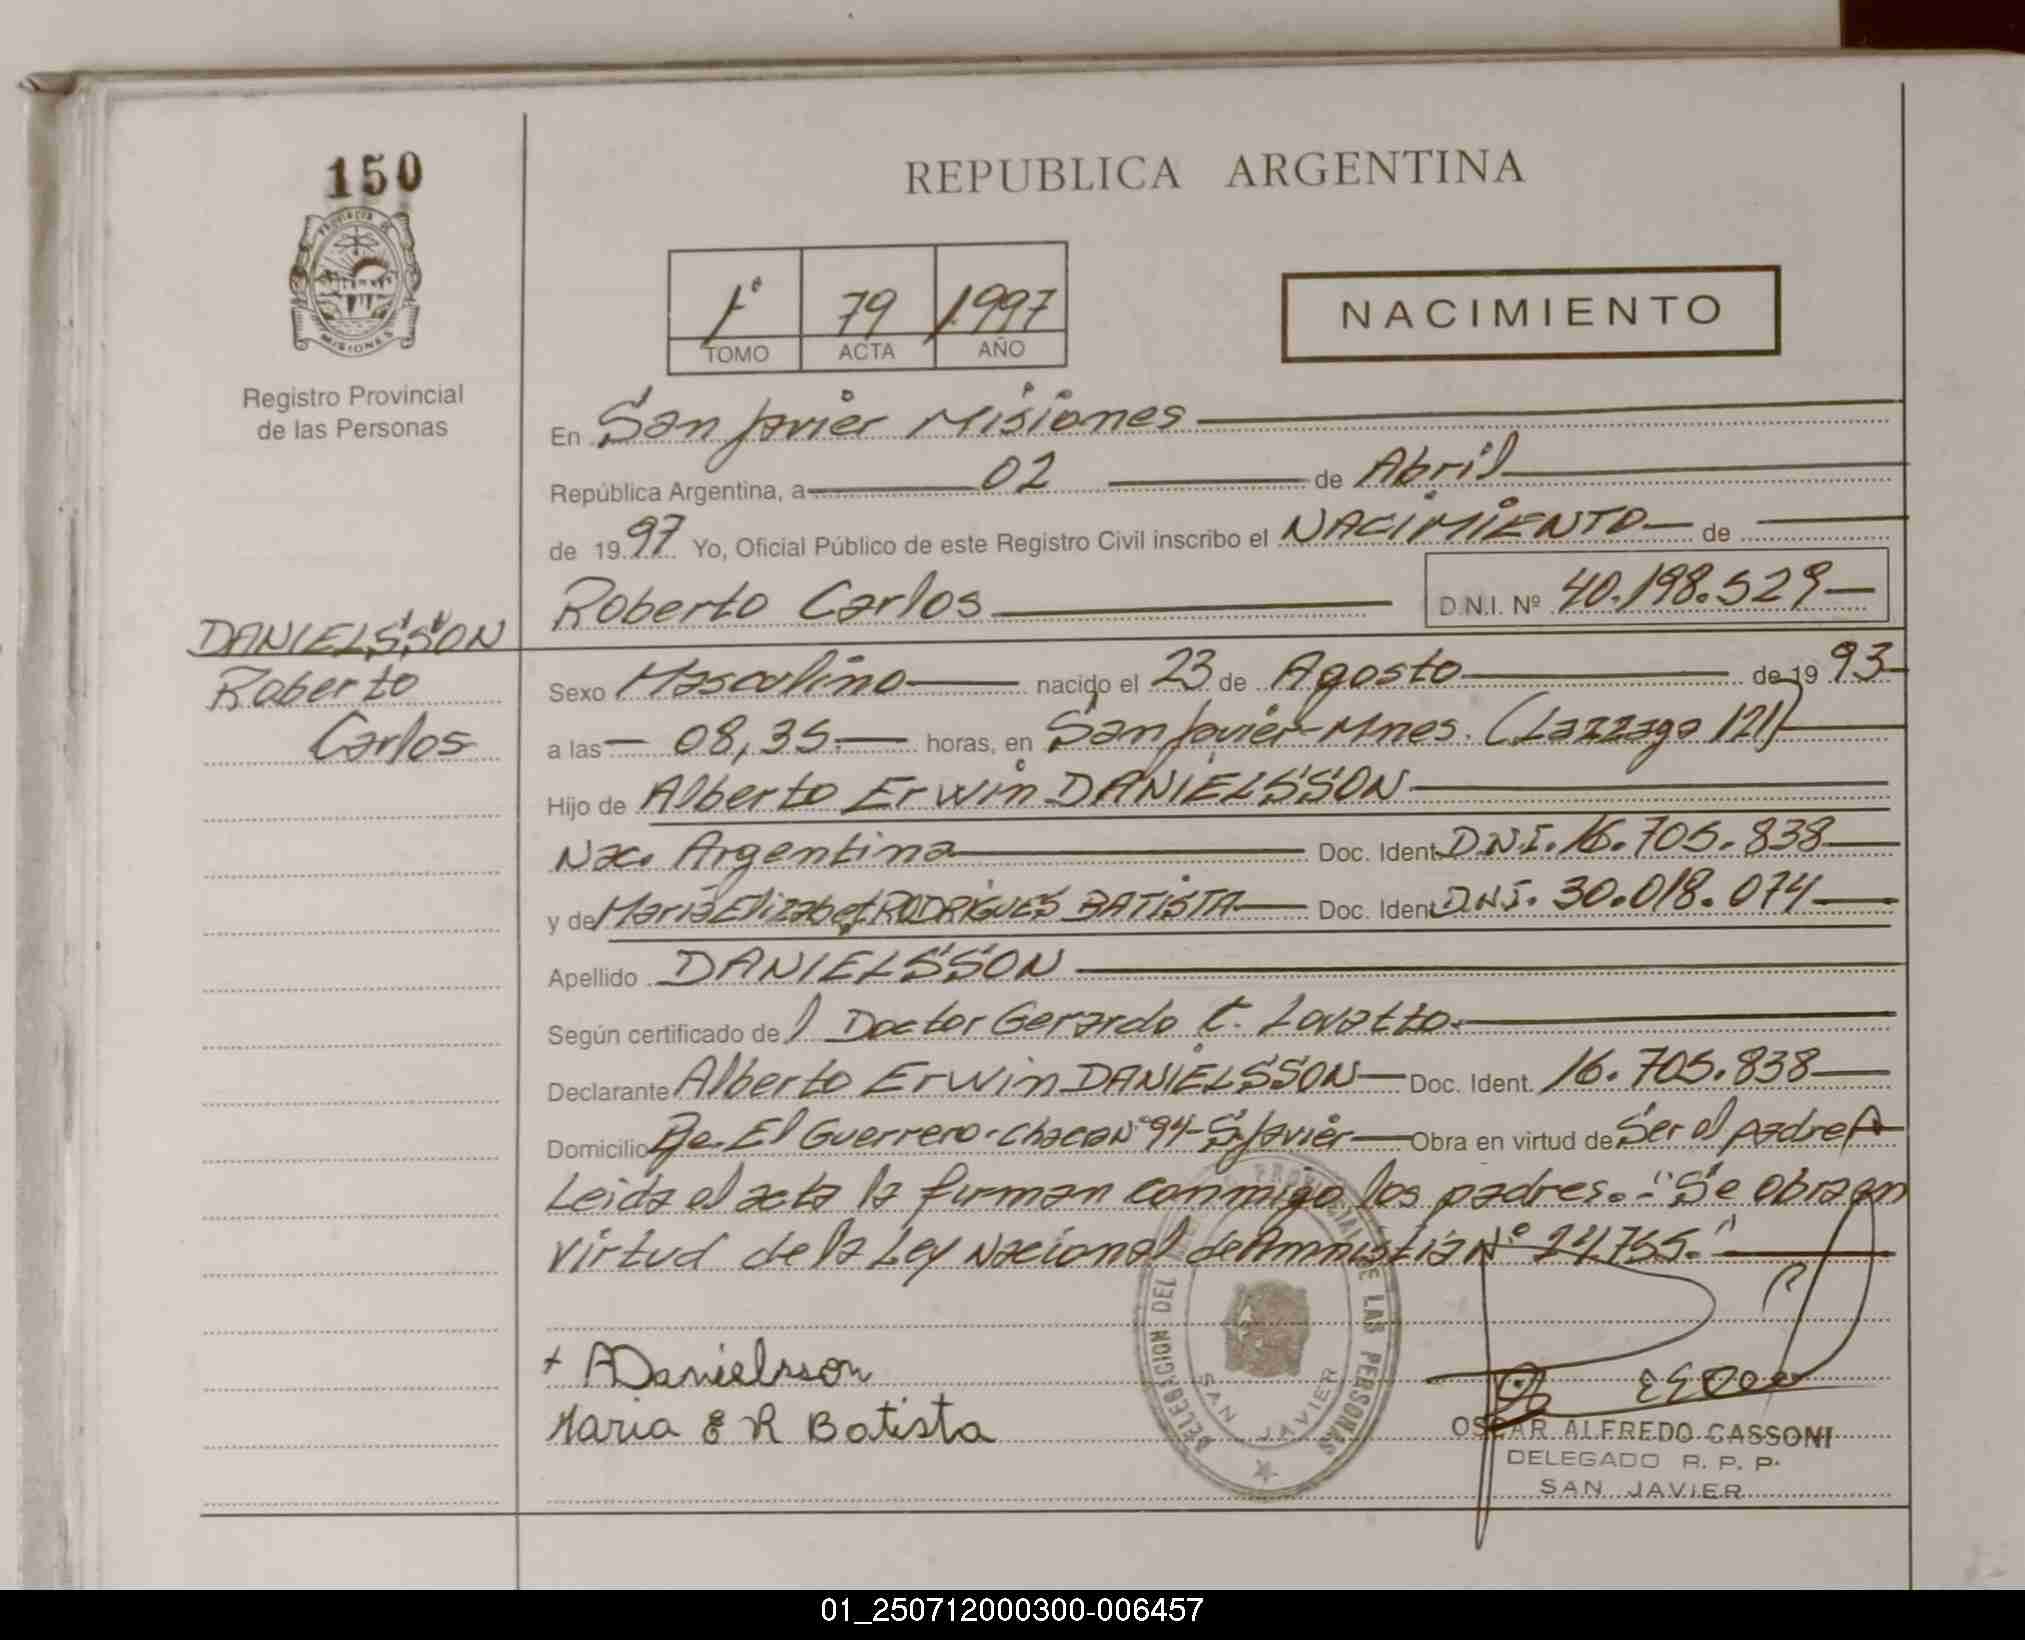 150
PROVINCIA DE
MISIONES
Registro Provincial
de las Personas
REPUBLICA ARGENTINA
1º 79 1997
TOMO ACTA AÑO
NACIMIENTO
En San Javier Misiones
República Argentina, a 02 de Abril
de 19 97 Yo, Oficial Público de este Registro Civil inscribo el NACIMIENTO de
Roberto Carlos D.N.I. Nº 40.198.529
DANIELSSON
Roberto
Carlos
Sexo Masculino nacido el 23 de Agosto de 19 93
a las 08,35 horas, en San Javier-Mnes. (Lazzaga 121)
Hijo de Alberto Erwin DANIELSSON
Nac. Argentina Doc. Ident D.N.I. 16.705.838
y de María Elizabet RODRIGUES BATISTA Doc. Ident D.N.I. 30.018.074
Apellido DANIELSSON
Según certificado de l Doctor Gerardo C. Lovatto.
Declarante Alberto Erwin DANIELSSON Doc. Ident. 16.705.838
Domicilio El Guerrero-Chacra Nº 94-S.Javier Obra en virtud de Ser el padre
Leida el acta la firman conmigo los padres.-"Se obra en
virtud de la Ley Nacional de Amnistia Nº 24.755."
A Danielsson
Maria E R Batista
DELEGACION DEL PROVINCIAL DE LAS PERSONAS
SAN JAVIER
OSCAR ALFREDO CASSONI
DELEGADO R. P. P.
SAN JAVIER
01_250712000300-006457